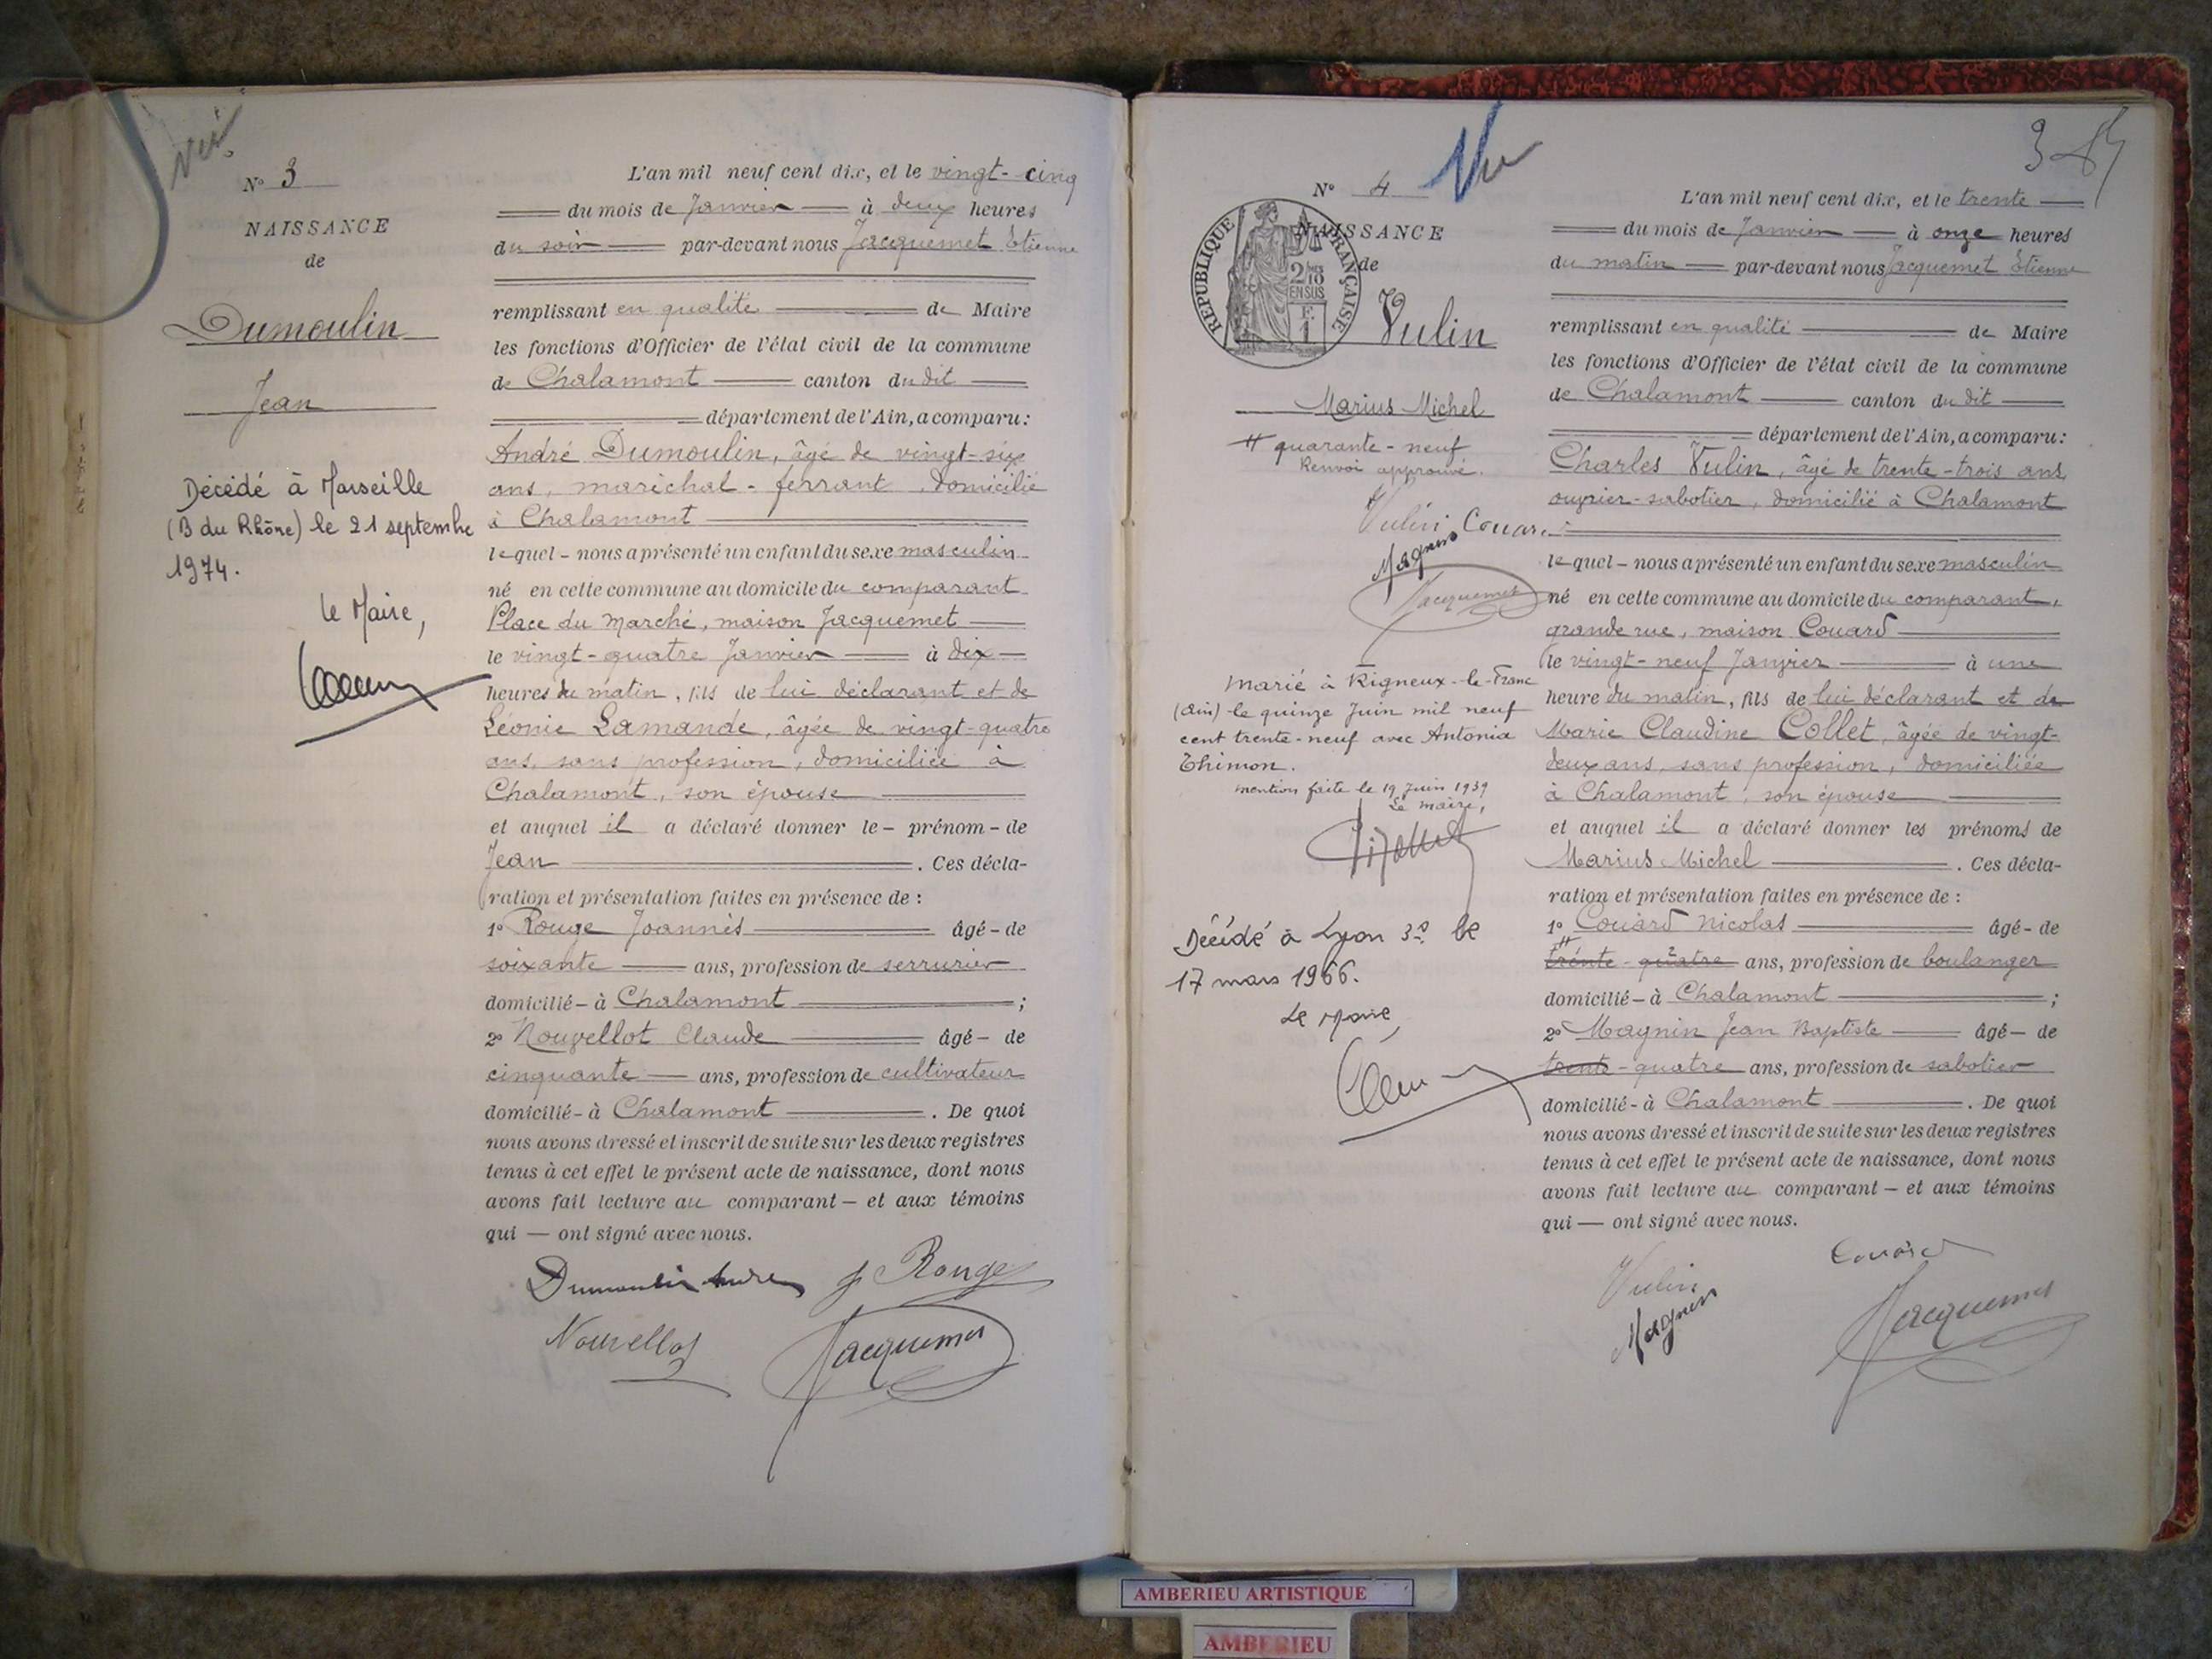 Vu
N° 3
NAISSANCE
de
Dumoulin
Jean
Décédé à Marseille
(B du Rhône) le 21 septembre
1974.
Le Maire,
L'an mil neuf cent dix, et le vingt-cinq
du mois de Janvier à deux heures
du soir par-devant nous Jacquemet Etienne
remplissant en qualité de Maire
les fonctions d'Officier de l'état civil de la commune
de Chalamont canton du dit
département de l'Ain, a comparu:
André Dumoulin, âgé de vingt-six
ans, maréchal-ferrant, domicilié
à Chalamont
lequel - nous a présenté un enfant du sexe masculin
né en cette commune au domicile du comparant
Place du Marché, maison Jacquemet
le vingt-quatre Janvier à dix
heures du matin, fils de lui déclarant et de
Léonie Lamande, âgée de vingt-quatre
ans, sans profession, domiciliée à
Chalamont, son épouse
et auquel il a déclaré donner le - prénom - de
Jean . Ces décla-
ration et présentation faites en présence de :
1° Rouge Joannès âgé - de
soixante ans, profession de serrurier
domicilié - à Chalamont ;
2° Nouvellot Claude âgé - de
cinquante ans, profession de cultivateur
domicilié - à Chalamont . De quoi
nous avons dressé et inscrit de suite sur les deux registres
tenus à cet effet le présent acte de naissance, dont nous
avons fait lecture au comparant - et aux témoins
qui - ont signé avec nous.
Dumoulin Andre J Rouge
Nouvellot Jacquemet
Vu
3
N° 4
NAISSANCE
de
RÉPUBLIQUE FRANÇAISE
2/10
EN SUS
F.
1
Vulin
Marius Michel
# quarante-neuf
Renvoi approuvé.
Vulin Couard
Magnin
Jacquemet
Marié à Rigneux-le-Franc
(Ain) le quinze Juin mil neuf
cent trente-neuf avec Antonia
Thimon.
Mention faite le 19 Juin 1939
Le maire,
Décédé à Lyon 3e le
17 mars 1966.
Le Maire,
L'an mil neuf cent dix, et le trente
du mois de Janvier à onze heures
du matin par-devant nous Jacquemet Etienne
remplissant en qualité de Maire
les fonctions d'Officier de l'état civil de la commune
de Chalamont canton du dit
département de l'Ain, a comparu:
Charles Vulin, âgé de trente-trois ans,
ouvrier-sabotier, domicilié à Chalamont
lequel - nous a présenté un enfant du sexe masculin
né en cette commune au domicile du comparant,
grande rue, maison Couard
le vingt-neuf Janvier à une
heure du matin, fils de lui déclarant et de
Marie Claudine Collet, âgée de vingt-
deux ans, sans profession, domiciliée
à Chalamont, son épouse
et auquel il a déclaré donner les prénoms de
Marius Michel . Ces décla-
ration et présentation faites en présence de :
1° Couard Nicolas âgé - de
# trente-quatre ans, profession de boulanger
domicilié - à Chalamont ;
2° Magnin Jean Baptiste âgé - de
trente-quatre ans, profession de sabotier
domicilié - à Chalamont . De quoi
nous avons dressé et inscrit de suite sur les deux registres
tenus à cet effet le présent acte de naissance, dont nous
avons fait lecture au comparant - et aux témoins
qui - ont signé avec nous.
Vulin Couard
Magnin Jacquemet
AMBERIEU ARTISTIQUE
AMBERIEU